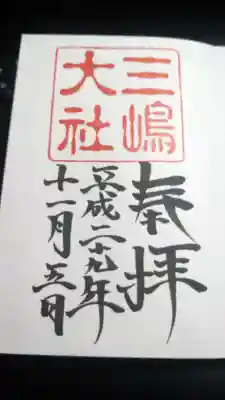 三嶋
大社
奉拝
平成二十九年
十一月五日